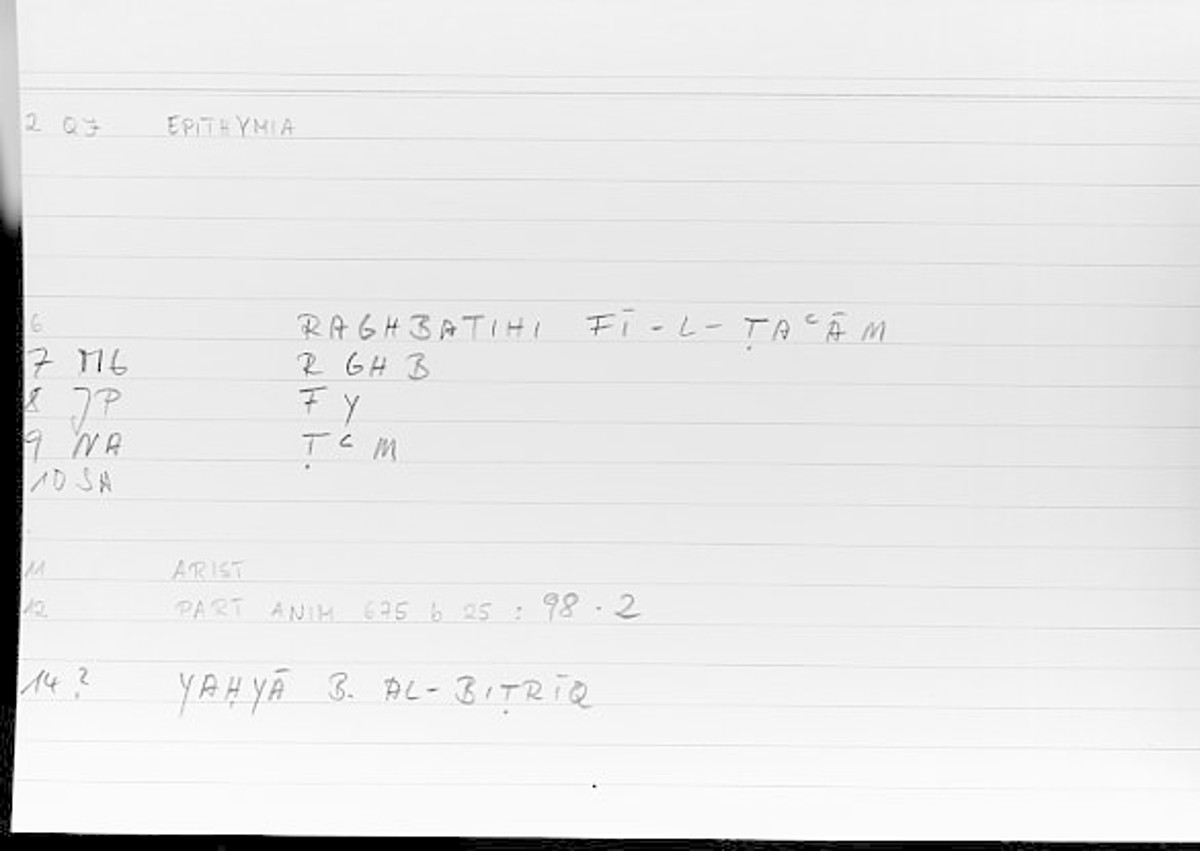 2 QJ EPITHYMIA
6 RAGHBATIHI FĪ-L-ṬAᶜĀM
7 MG R GH B
8 JP F Y
9 NA Ṭ ᶜ M
10 SA
11 ARIST
12 PART ANIM 675 b 25 : 98.2
14 ? YAḤYĀ B. AL-BIṬRĪQ